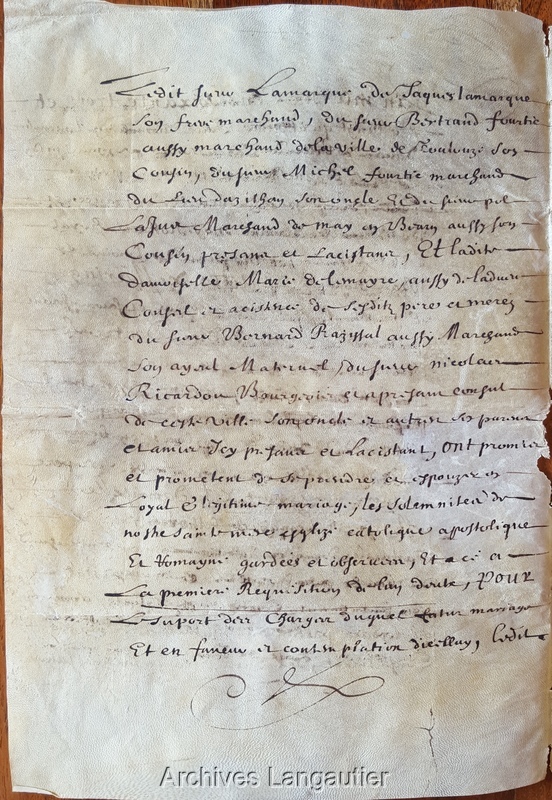 Ledit sieur Lamarque de Jaques lamarque
son frere marchand, du sieur Bertrand fourtic
aussy marchand dela ville de Toulouze son
Cousin, du sieur Michel fourtic marchand
du Lieu dazilhan son oncle Et du sieur
Marchand de may en Bearn aussy son
Cousin presans et Lacistans, Et ladite
damoiselle Marie delemayre, aussy de ladvis
Conseil et acistence de sesditz pere et mere
du sieur Bernard aussy Marchand
son ayeul Maternel, du sieur nicolas
Ricardou Bourgeois et apresant consul
de ceste ville son oncle et autres ses parens
et amies Icy presans et Lacistant, ont promis
et prometent de se prendre et espouzer en
Loyal & legitime mariage, les solemnites de
nostre sainte mere esglize catolique apostolique
Et Romayne gardees et observees, Et a ce a
La premiere Requisition de lun deute, POUR
Le suport des Charges duquel futur mariage
Et en faveur et contemplation dicelluy, ledit
Archives Langautier